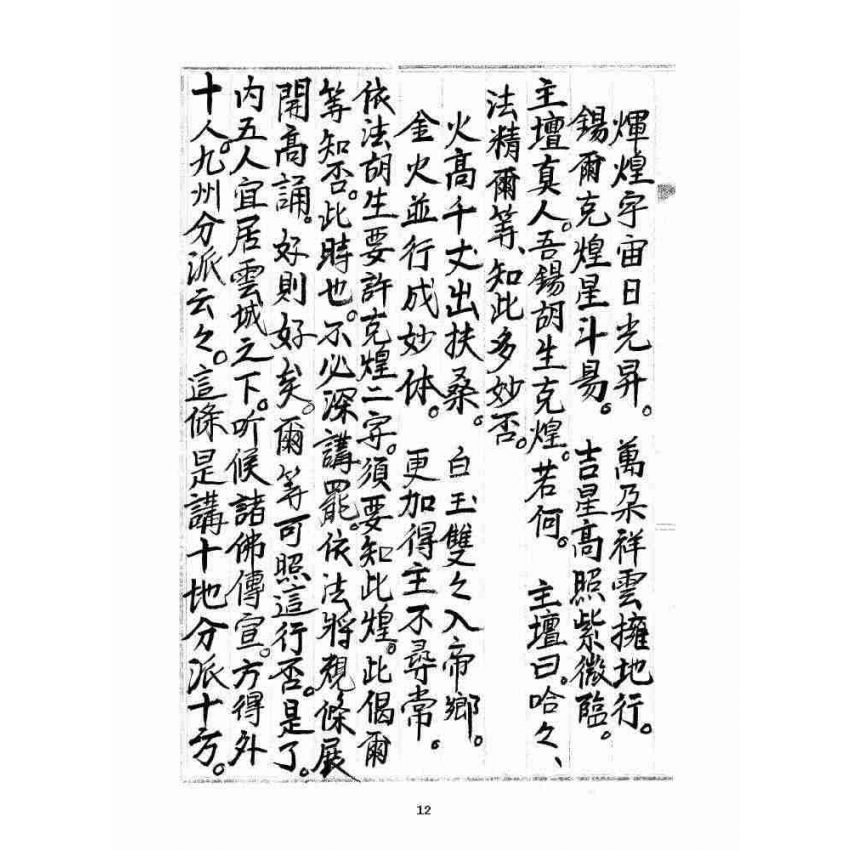 輝煌宇宙日光昇。萬朶祥雲擁地行。
錫爾克煌星斗易。吉星高照紫微臨。
主壇真人。吾錫胡生克煌。若何。主壇曰。哈々、
法精爾等、知此多妙否。
火高千丈出扶桑。白玉雙々入帝鄉。
金火並行成妙体。更加得主不尋常。
依法胡生要許克煌二字。須要知此煌。此偈爾
等知否。此時也。不必深講罷。依法將規條展
開高誦。好則好矣。爾等可照這行否。是了。
內五人宜居雲城之下。听候諸佛傳宣。方得外
十人。九州分派云々。這條是講十地分派十方。
12